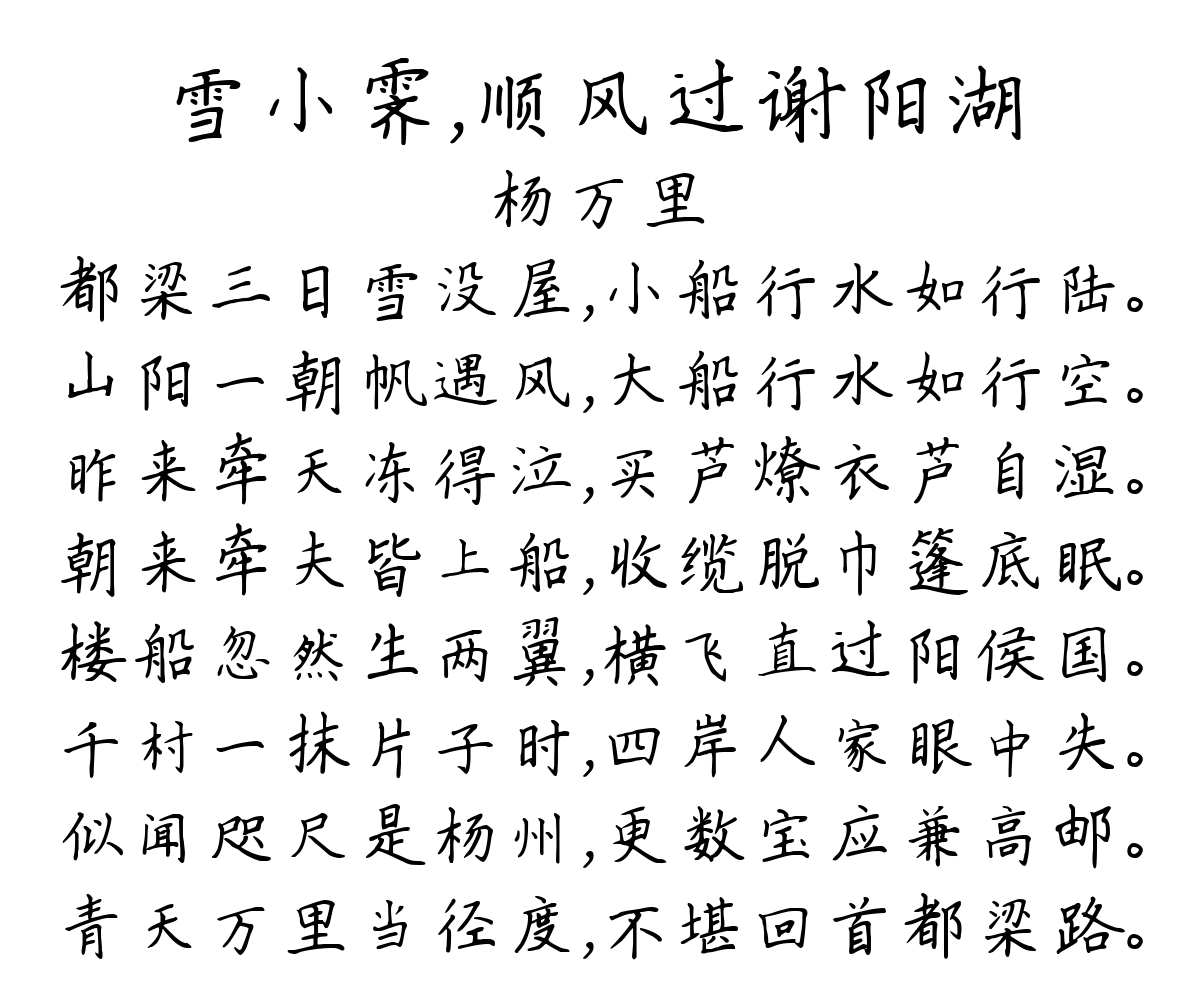 雪小霁,顺风过谢阳湖
杨万里
都梁三日雪没屋,小船行水如行陆。
山阳一朝帆遇风,大船行水如行空。
昨来牵天冻得泣,买芦燎衣芦自湿。
朝来牵夫皆上船,收缆脱巾篷底眠。
楼船忽然生两翼,横飞直过阳侯国。
千村一抹片子时,四岸人家眼中失。
似闻咫尺是杨州,更数宝应兼高邮。
青天万里当径度,不堪回首都梁路。